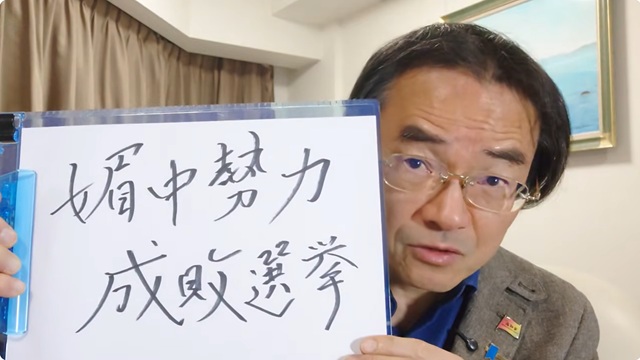 媚中勢力
成敗選挙